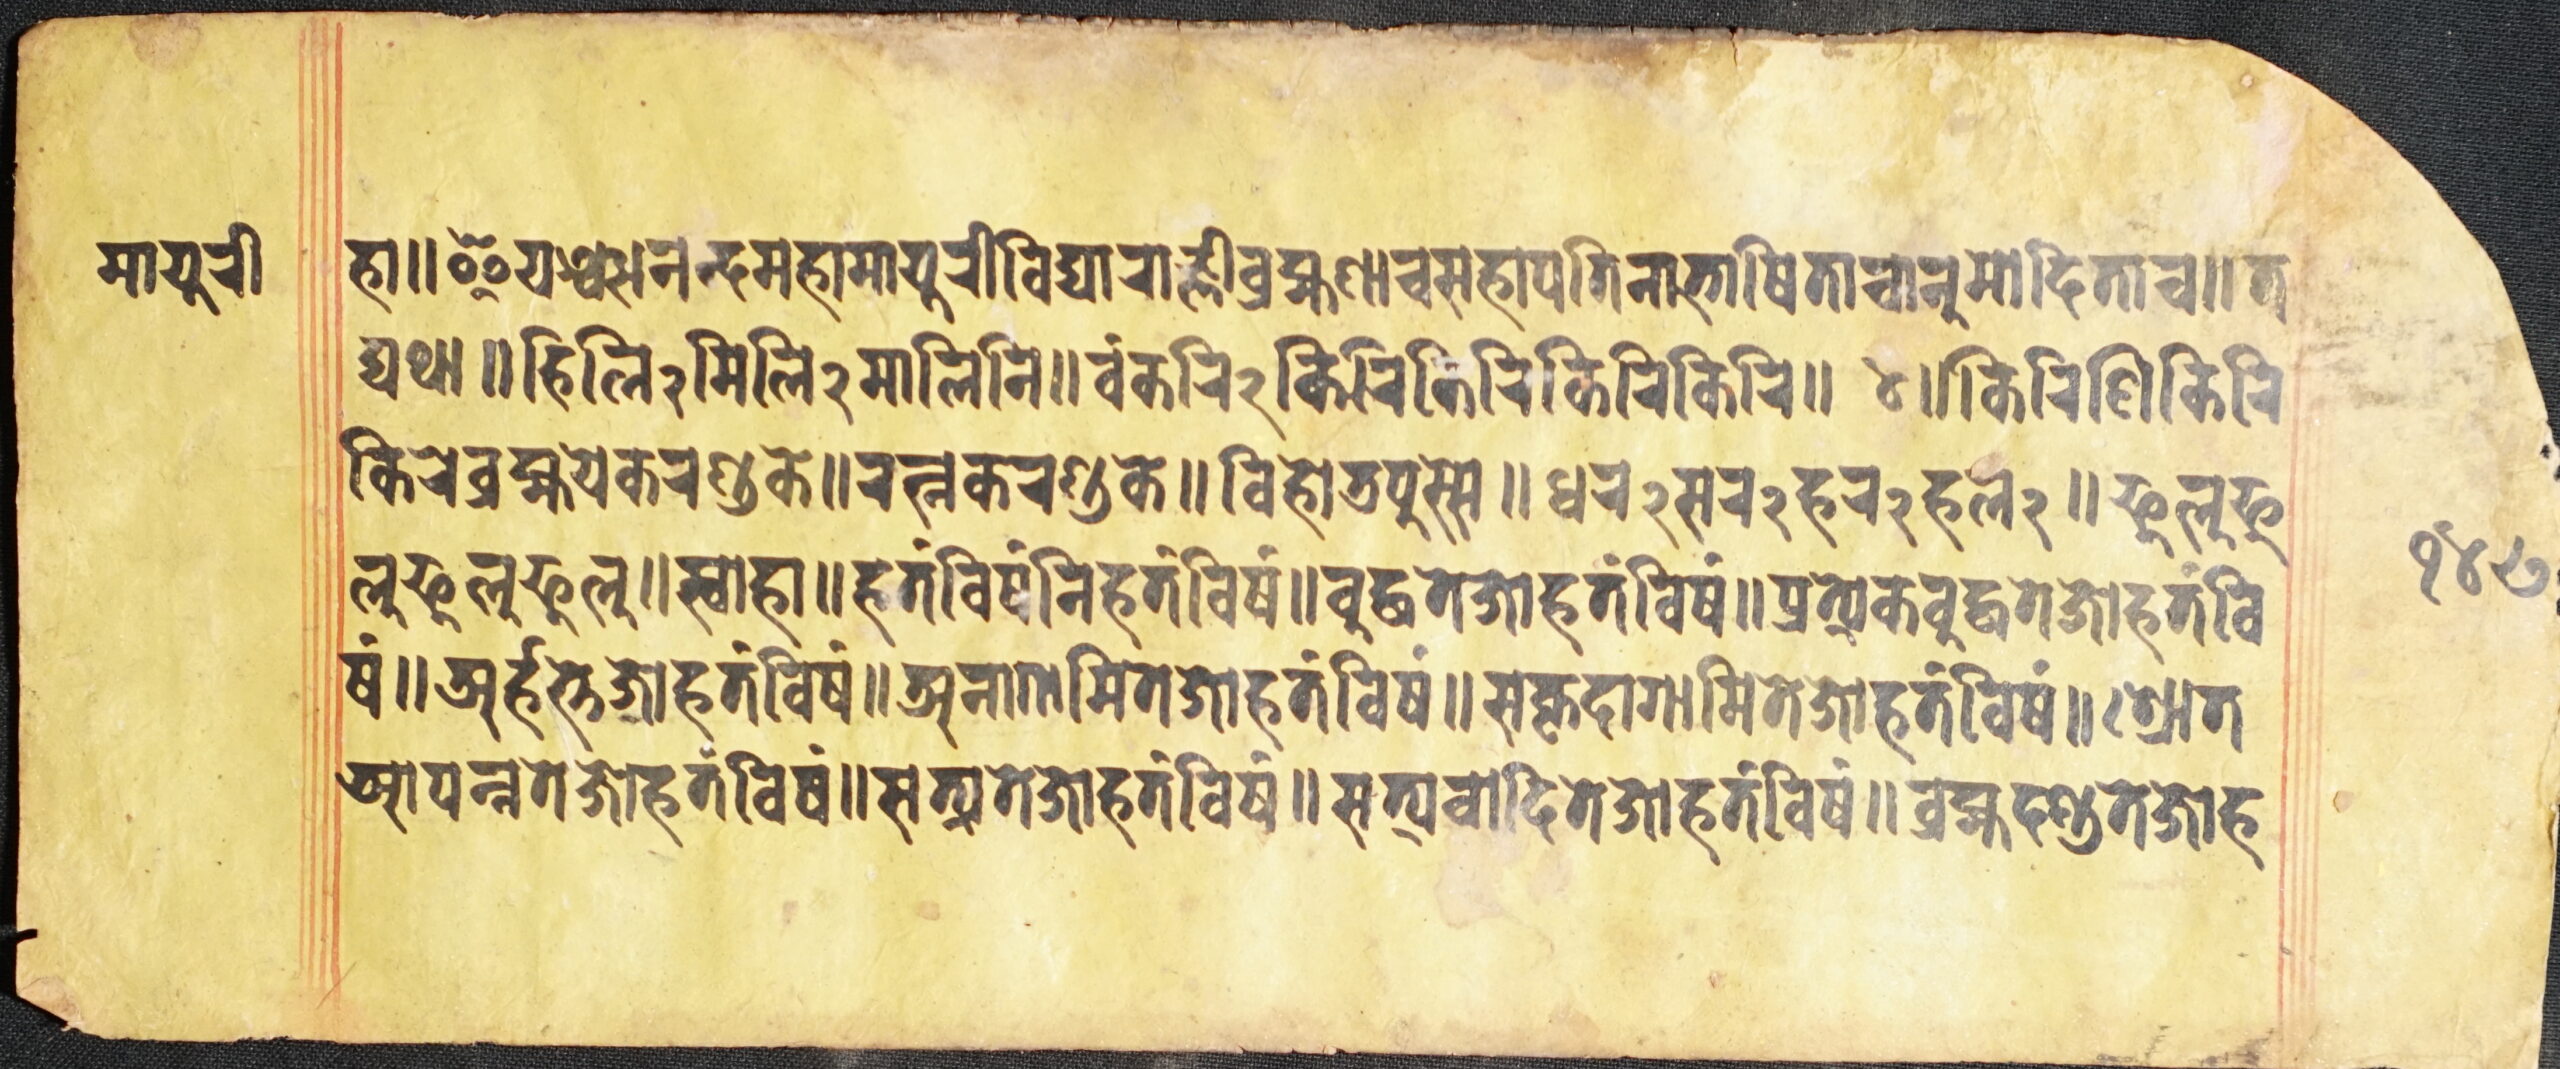 मायुरी
हा॥ॐयञ्चानन्दमहामायुरीविद्याराज्ञीब्रह्मणाचसहापतिनाभाषिताचानुमोदिताच॥त
द्यथा॥हिलि२मिलि२मालिनि॥वंकरि२किरिकिरिकिरिकिरि॥४॥किरिणिकिरि
किरेब्रह्मयेकरण्डके॥रत्नकरण्डके॥विहोडपुस्से॥धर२सर२हर२हल२॥फुलुफु
लुफुलुफुलु॥स्वाहा॥हतंविषंनिहतंविषं॥बुद्धतेजोहतंविषं॥प्रत्येकबुद्धतेजोहतंवि
षं॥अर्हस्तेजोहतंविषं॥अनागामितेजोहतंविषं॥सकृदागामितेजोहतंविषं॥श्रोत
आपन्नतेजोहतंविषं॥सत्यतेजोहतंविषं॥सत्यवादितेजोहतंविषं॥ब्रह्मदण्डतेजोह
१४७